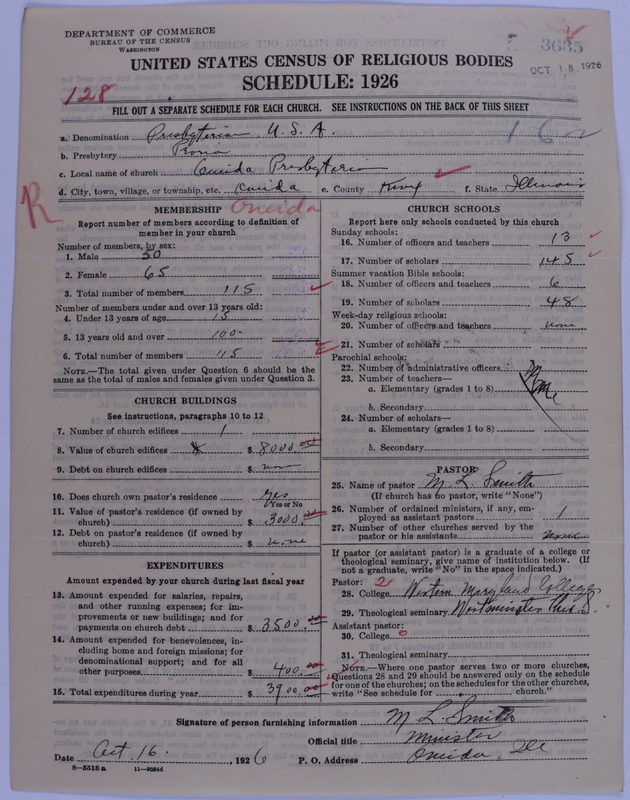 DEPARTMENT OF COMMERCE
BUREAU OF THE CENSUS
WASHINGTON
3635
OCT 18 1926
UNITED STATES CENSUS OF RELIGIOUS BODIES
SCHEDULE: 1926
128
FILL OUT A SEPARATE SCHEDULE FOR EACH CHURCH. SEE INSTRUCTIONS ON THE BACK OF THIS SHEET
a. Denomination Presbyterian U.S.A.
162
b. Presbytery Peoria
c. Local name of church Oneida Presbyterian
d. City, town, village, or township, etc. Oneida e. County Knox f. State Illinois
R
MEMBERSHIP Oneida
Report number of members according to definition of
member in your church
Number of members, by sex:
1. Male 50
2. Female 65
3. Total number of members 115
Number of members under and over 13 years old:
4. Under 13 years of age 15
5. 13 years old and over 100
6. Total number of members 115
NOTE.—The total given under Question 6 should be
the same as the total of males and females given under Question 3.
CHURCH BUILDINGS
See instructions, paragraphs 10 to 12
7. Number of church edifices 1
8. Value of church edifices $ 8000.00
9. Debt on church edifices $ none
10. Does church own pastor's residence yes
Yes or No
11. Value of pastor's residence (if owned by
church) $ 3000.00
12. Debt on pastor's residence (if owned by
church) $ none
EXPENDITURES
Amount expended by your church during last fiscal year
13. Amount expended for salaries, repairs,
and other running expenses; for im-
provements or new buildings; and for
payments on church debt $ 3500.00
14. Amount expended for benevolences, in-
cluding home and foreign missions; for
denominational support; and for all
other purposes $ 400.00
15. Total expenditures during year $ 3900.00
CHURCH SCHOOLS
Report here only schools conducted by this church
Sunday schools:
16. Number of officers and teachers 13
17. Number of scholars 145
Summer vacation Bible schools:
18. Number of officers and teachers 6
19. Number of scholars 48
Week-day religious schools:
20. Number of officers and teachers none
21. Number of scholars
Parochial schools:
22. Number of administrative officers
23. Number of teachers—
a. Elementary (grades 1 to 8)
b. Secondary
24. Number of scholars—
a. Elementary (grades 1 to 8)
b. Secondary
PASTOR
25. Name of pastor M. L. Smith
(If church has no pastor, write "None")
26. Number of ordained ministers, if any, em-
ployed as assistant pastors 1
27. Number of other churches served by the
pastor or his assistants none
If pastor (or assistant pastor) is a graduate of a college or
theological seminary, give name of institution below. (If
not a graduate, write "No" in the space indicated.)
Pastor: 2
28. College Western Maryland College
29. Theological seminary Westminster
Assistant pastor:
30. College 0
31. Theological seminary
NOTE.—Where one pastor serves two or more churches,
Questions 28 and 29 should be answered only on the schedule
for one of the churches; on the schedules for the other churches,
write "See schedule for church."
Signature of person furnishing information M. L. Smith
Official title Minister
Date Oct. 16., 1926 P. O. Address Oneida, Ill
8—5516 a 11—9034d